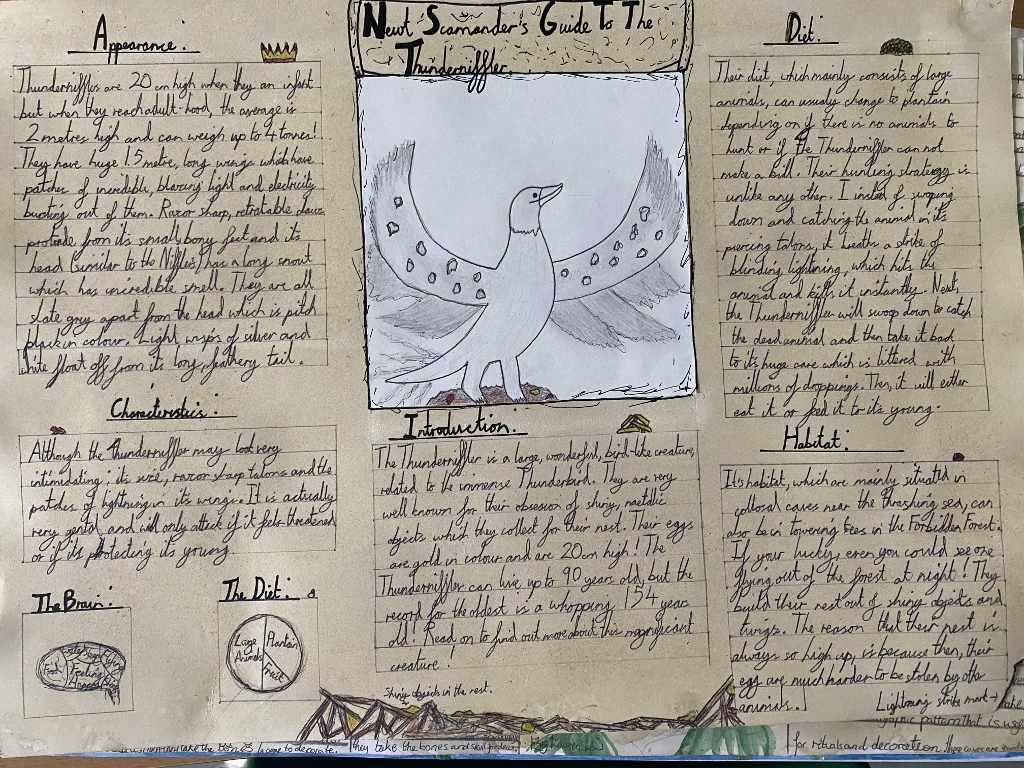 Newt Scamander's Guide To The
Thunderniffler.
Appearance.
Thunderniffler are 20 cm high when they an infant
but when they reach adult-hood, the average is
2 metres high and can weigh up to 4 tonnes!
They have huge 1.5 metre, long wings which have
patches of incredible, blazing light and electricity
bursting out of them. Razor sharp, retratable claws
protrude from its small, bony feet and its
head (similar to the Niffler) has a long snout
which has incredible smell. They are all
slate grey apart from the head which is pitch
black in colour. Light wisps of silver and
white float off from its long, feathery tail.
Characteristics:
Although the Thunderniffler may look very
intimidating; its size, razor sharp talons and the
patches of lightning in its wings. It is actually
very gentle and will only attack if it feels threatened
or if its protecting its young.
The Brain:
Food
Feeling
The Diet:
Large Animals
Plantain
Fruit
Introduction:
The Thunderniffler is a large, wonderful, bird-like creature,
related to the immense Thunderbird. They are very
well known for their obsession of shiny, metallic
objects which they collect for their nest. Their eggs
are gold in colour and are 20cm high! The
Thunderniffler can live up to 90 years old, but the
record for the oldest is a whopping 154 years
old! Read on to find out more about this magnificent
creature!
Shiny objects in the nest.
Diet:
Their diet, which mainly consists of large
animals, can usualy change to plantain
depending on if there is no animals to
hunt or if the Thunderniffler can not
make a kill. Their hunting strategy is
unlike any other. I instead of swoping
down and catching the animal in its
piercing talons, it breaths a strike of
blinding lightning, which hits the
animal and kills it instantly. Next,
the Thunderniffler will swoop down to catch
the dead animal and then take it back
to its huge cave which is littered with
millions of droppings. Then, it will either
eat it or feed it to it's young.
Habitat:
It's habitat, which are mainly situated in
collosal caves near the thrashing sea, can
also be in towering trees in the Forbidden Forest.
If your lucky, even you could see one
flying out of the forest at night! They
build their nest out of shiny objects and
twings. The reason that their nest is
always so high up, is because then, their
egg are much harder to be stolen by other
animals.
Lightning strike mark →
take the bones to decorate.
they take the bones and
for rituals and decoration. these caves are
pattern That is